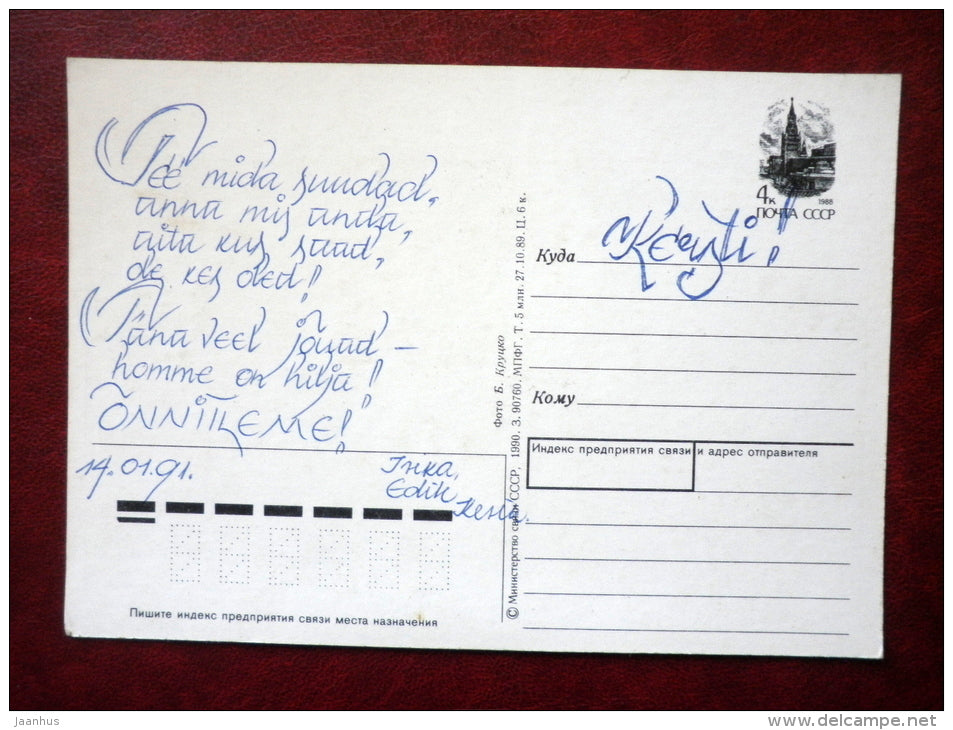 Tee mida suudad,
anna mis anda,
aita kus saad,
ole kes oled!
Täna veel jõuad –
homme on hilja!
ÕNNITLEME!
14.01.91.
Inka,
Edik
Кеша.
Пишите индекс предприятия связи места назначения
© Министерство связи СССР, 1990. З. 90760. МПФГ. Т. 5 млн. 27.10.89. Ц. 6 к.
Фото Б. Круцко
4к 1988
ПОЧТА СССР
Kersti!
Куда
Кому
Индекс предприятия связи и адрес отправителя
Jaanhus
delcampe.net